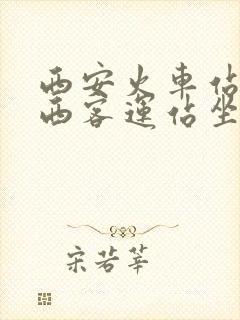 西安火車佔
西客運佔坐
宋若莘